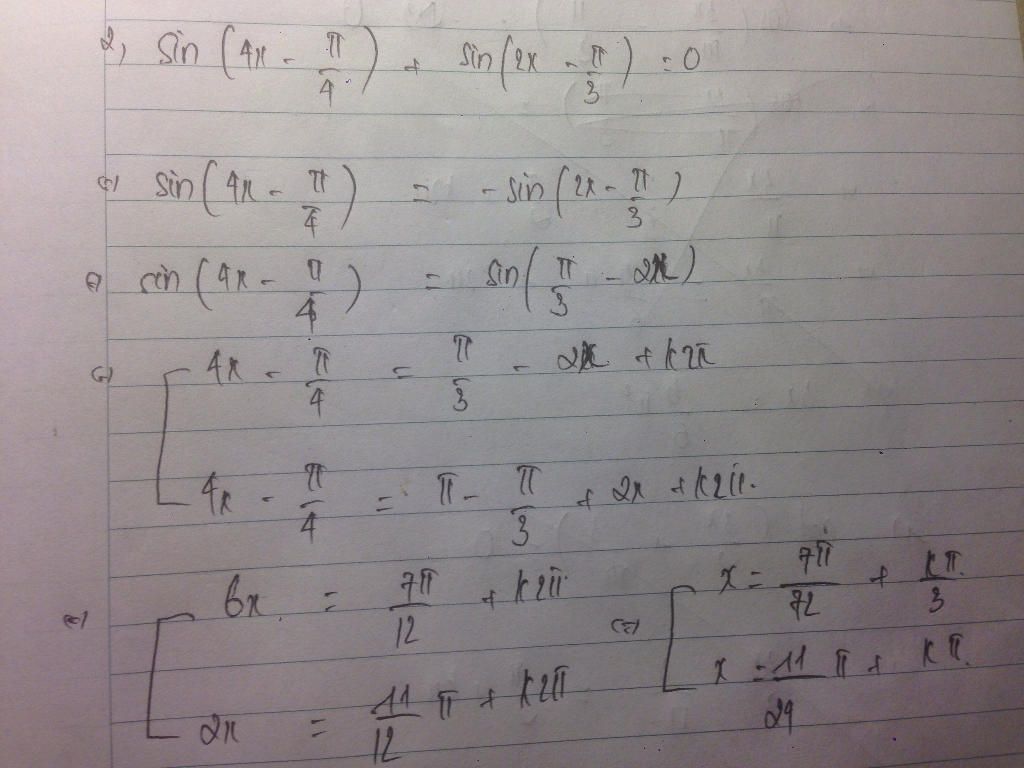 2, sin(4x - π/4) + sin(2x - π/3) = 0
⇔ sin(4x - π/4) = -sin(2x - π/3)
⇔ sin(4x - π/4) = sin(π/3 - 2x)
⇔ [ 4x - π/4 = π/3 - 2x + k2π
4x - π/4 = π - π/3 + 2x + k2π.
⇔ [ 6x = 7π/12 + k2π ⇔ [ x = 7π/72 + kπ/3
2x = 11/12 π + k2π x = 11/24 π + kπ.